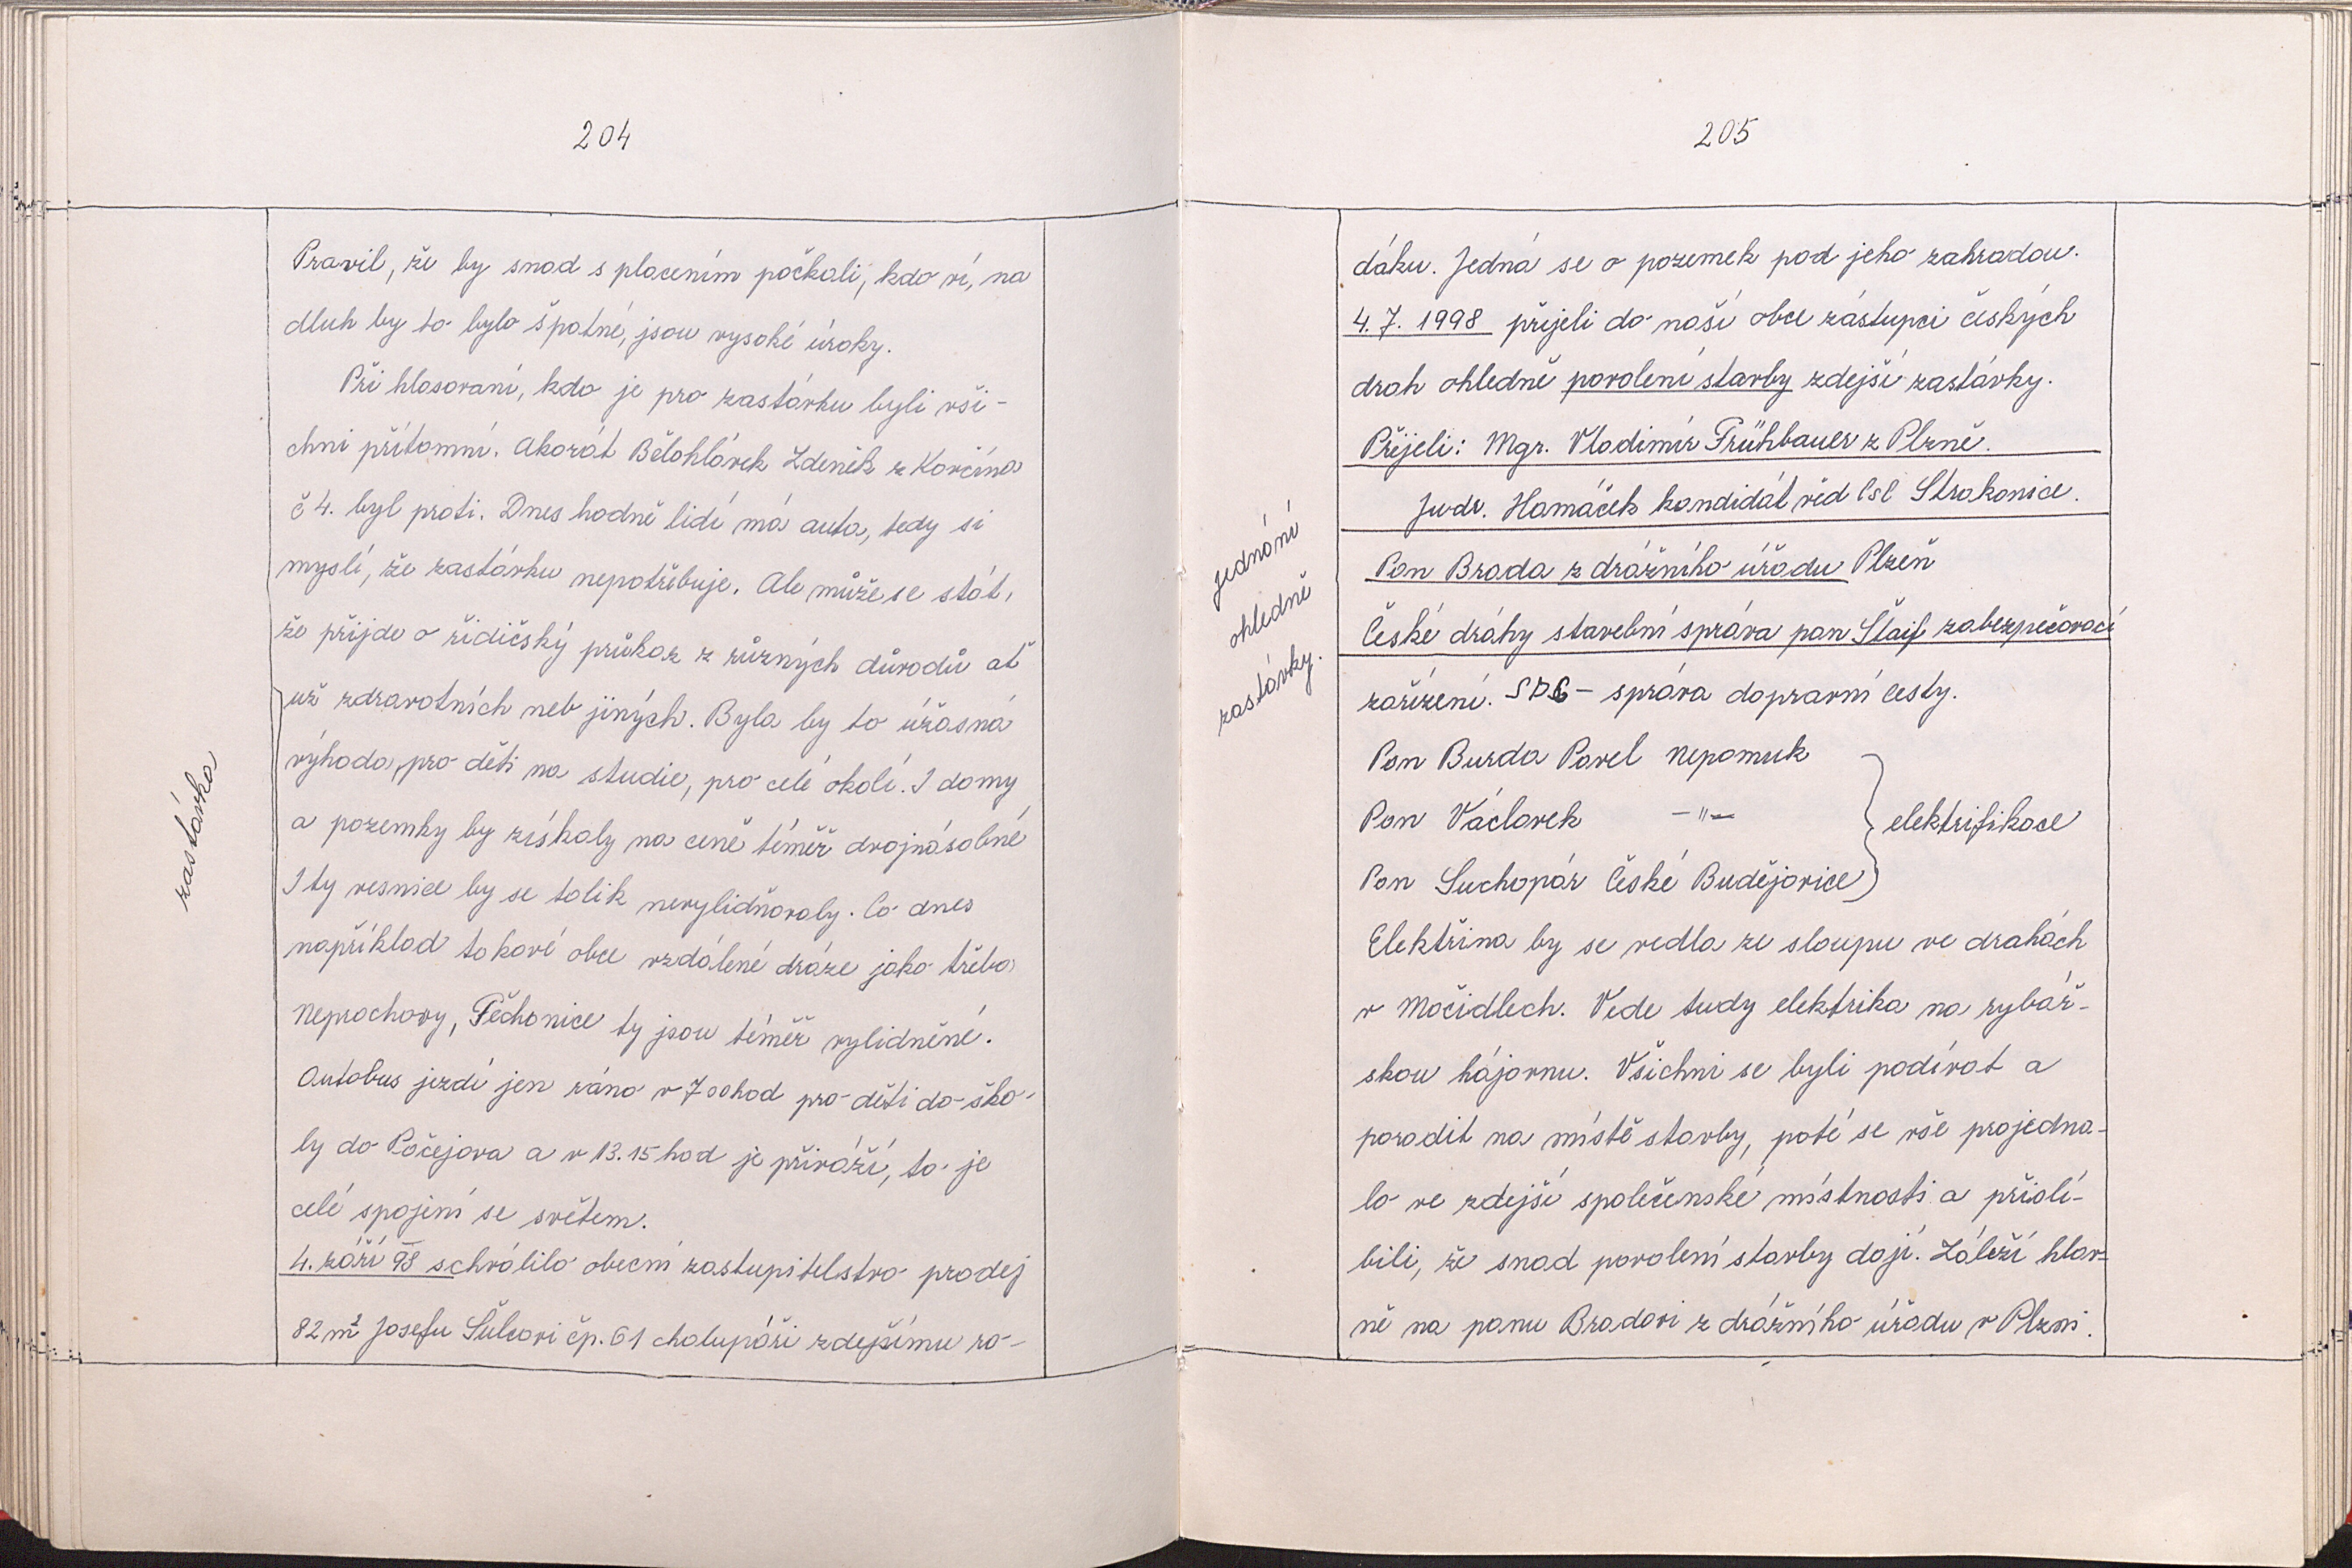 204
Pravil, že by snad s placením počkali, kdo ví, na
dluh by to bylo špatné, jsou vysoké úroky.
Při hlasovaní, kdo je pro zastávku byli vši-
chni přítomní. Akorát Bělohlávek Zdeněk z Kovčína
č 4. byl proti. Dnes hodně lidí má auta, tedy si
myslí, že zastávku nepotřebuje. Ale může se stát,
že přijde o řidičský průkaz z různých důvodů ať
už zdravotních neb jiných. Byla by to úžasná
výhoda, pro děti na studie, pro celé okolí. I domy
a pozemky by získaly na ceně téměř dvojnásobné
I ty vesnice by se tolik nevylidňovaly. Co dnes
například takové obce vzdálené dráze jako třeba
Neprochovy, Těchonice ty jsou téměř vylidněné.
Autobus jezdí jen ráno v 7 00 hod pro děti do ško-
ly do Pačejova a v 13.15 hod je přiváží, to je
celé spojení se světem.
4. září 98 schválilo obecní zastupitelstvo prodej
82 m² Josefu Šulcovi čp. 61 chalupáři zdejšímu ro-
zastávka
205
dáku. Jedná se o pozemek pod jeho zahradou.
4. 7. 1998 přijeli do naší obce zástupci českých
drah ohledně povolení stavby zdejší zastávky.
Přijeli: Mgr. Vladimír Frühbauer z Plzně.
Judr. Hamáček kandidát věd Csl Strakonice.
Pan Brada z drážního úřadu Plzeň
České dráhy stavební správa pan Štaif zabezpečovací
zařízení. SDC - správa dopravní cesty.
Pan Burda Pavel Nepomuk
Pan Václavek -"-
elektrifikace
Pan Suchopár České Budějovice
Elektřina by se vedla ze sloupu ve drahách
v Močidlech. Vede tudy elektrika na rybář-
skou hájovnu. Všichni se byli podívat a
poradit na místě stavby, poté se vše projedna-
lo ve zdejší společenské místnosti a přislí-
bili, že snad povolení stavby dají. Záleží hlav-
ně na panu Bradovi z drážního úřadu v Plzni.
jednání
ohledně
zastávky.